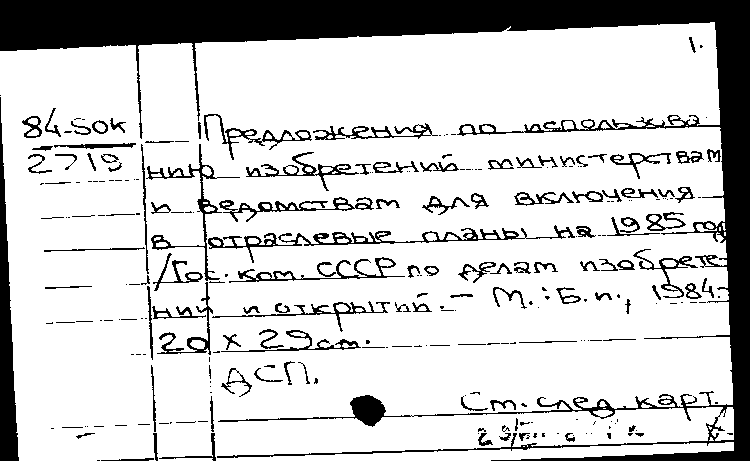 1.
84-5ок
2719
Предложения по использова
нию изобретений министерствам
и ведомствам для включения
в отраслевые планы на 1985 год
/Гос. ком. СССР по делам изобрете-
ний и открытий. – М.: Б.и., 1984.-
20 х 29 см.
ДСП.
См. след. карт.